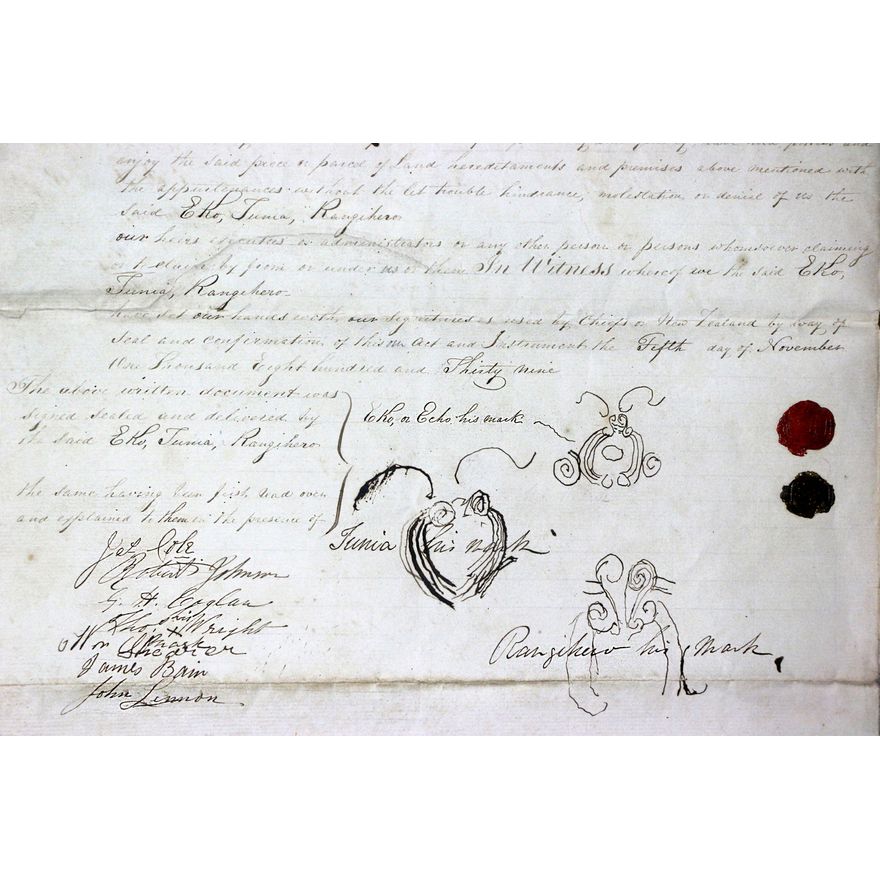 enjoy the said piece or parcel of Land hereditaments and premises above mentioned with
the appurtenances without the let trouble hindrance, molestation or denial of us the
said EKo, Tunia, Rangihero
our heirs executors or administrators or any other person or persons whomsoever claiming
or to claim by from or under us or them In Witness whereof we the said EKo,
Tunia, Rangihero
have set our hands with our signatures as used by Chiefs of New Zealand by way of
seal and confirmation of this our Act and Instrument the Fifth day of November
One Thousand Eight hundred and Thirty nine
The above written document was
signed sealed and delivered by
the said EKo, Tunia, Rangihero
the same having been first read over
and explained to them in the presence of
EKo, or Echo his mark
Tunia his mark
Rangihero his mark
Jas Cole
Robert Johnson
G. H. Coglan
Tho his Wright
X
mark
Wm
James Bain
John Lennon